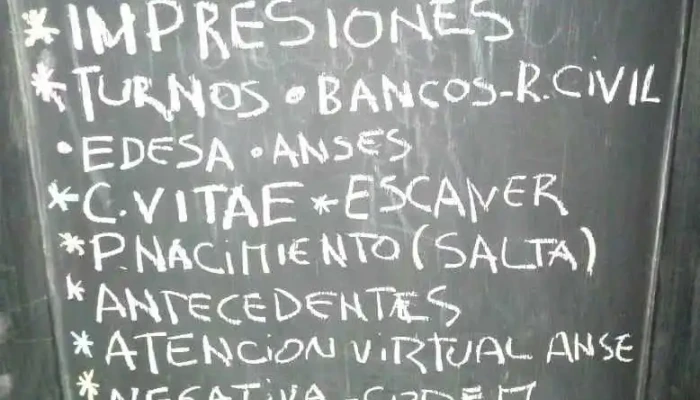 *IMPRESIONES
*TURNOS •BANCOS-R.CIVIL
•EDESA •ANSES
*C.VITAE *ESCANER
*P.NACIMIENTO(SALTA)
*ANTECEDENTES
*ATENCION VIRTUAL ANSE
*NEGATIVA-CODEM